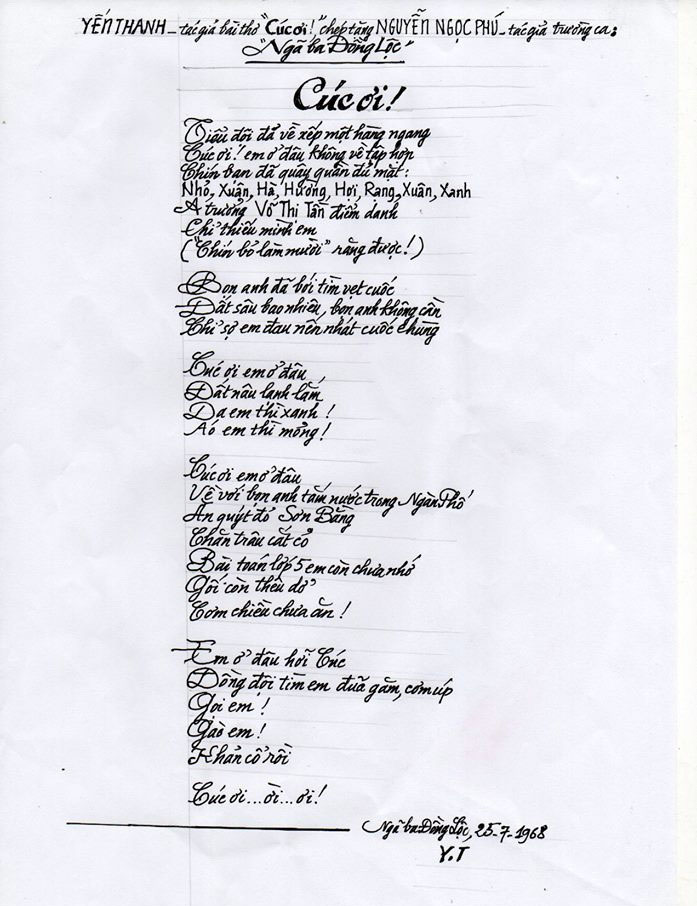 YẾN THANH _ tác giả bài thơ "Cúc ơi!" chép tặng NGUYỄN NGỌC PHÚ _ tác giả trường ca:
"Ngã ba Đồng Lộc"
Cúc ơi!
Tiểu đội đã về xếp một hàng ngang
Cúc ơi! em ở đâu không về tập hợp
Chín bạn đã quây quần đủ mặt:
Nhỏ, Xuân, Hà, Hường, Hợi, Rạng, Xuân, Xanh
A trưởng Võ Thị Tần điểm danh
Chỉ thiếu mình em
("Chín bỏ làm mười" răng được!)
Bọn anh đã bới tìm vẹt cuốc
Đất sâu bao nhiêu, bọn anh không cần
Chỉ sợ em đau nên nhát cuốc chùng
Cúc ơi em ở đâu
Đất nâu lạnh lắm
Da em thì xanh!
Áo em thì mỏng!
Cúc ơi em ở đâu
Về với bọn anh tắm nước trong Ngàn Phố
Ăn quýt đỏ Sơn Bằng
Chăn trâu cắt cỏ
Bài toán lớp 5 em còn chưa nhớ
Gối còn thêu dở
Cơm chiều chưa ăn!
Em ở đâu hỡi Cúc
Đồng đội tìm em đũa găm, cơm úp
Gọi em!
Gào em!
Khản cổ rồi
Cúc ơi...ời...ơi!
Ngã ba Đồng Lộc, 25-7-1968
Y.T